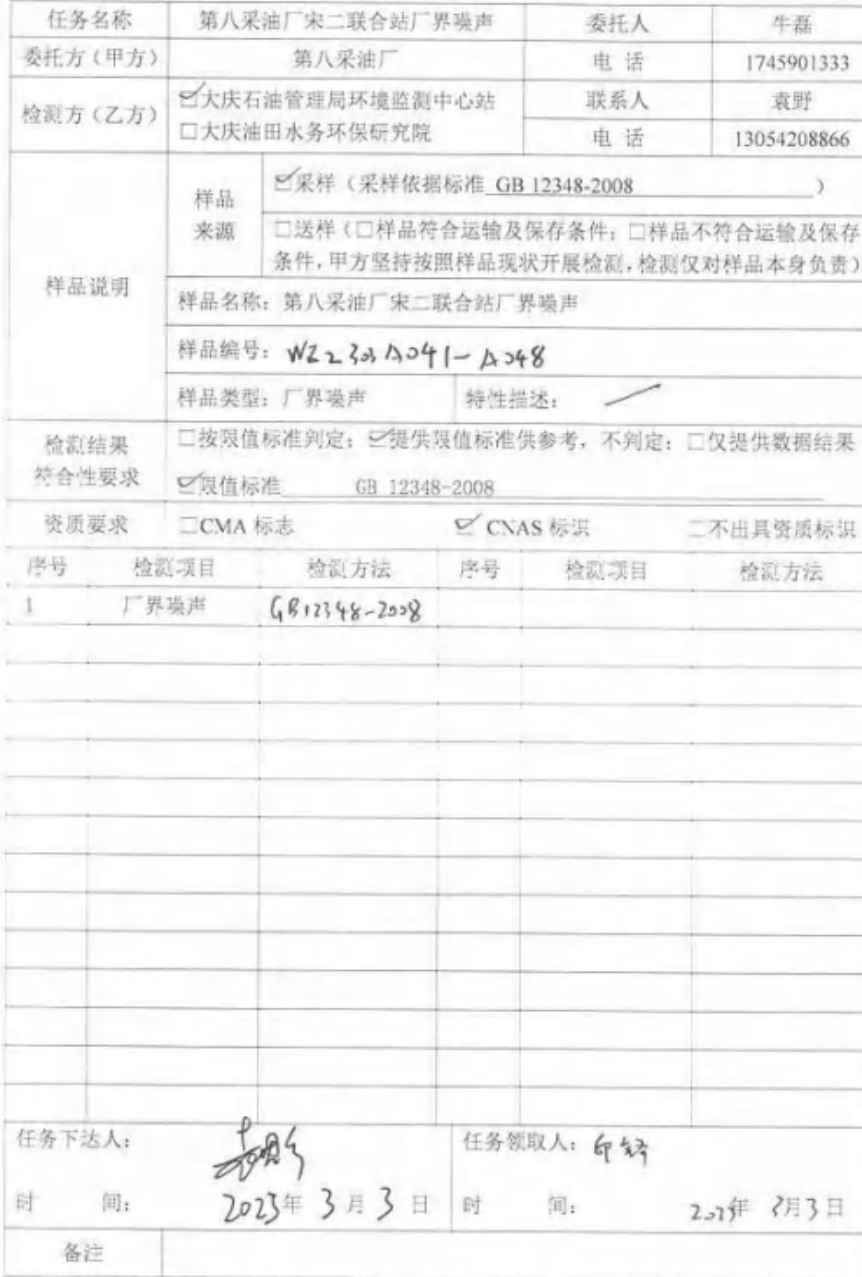 任务名称 第八采油厂宋二联合站厂界噪声 委托人 牛磊
委托方（甲方） 第八采油厂 电 话 1745901333
检测方（乙方） ☑大庆石油管理局环境监测中心站 联系人 袁野
□大庆油田水务环保研究院 电 话 13054208866
样品说明 样品来源 ☑采样（采样依据标准 GB 12348-2008 ）
□送样（□样品符合运输及保存条件；□样品不符合运输及保存
条件，甲方坚持按照样品现状开展检测，检测仅对样品本身负责）
样品名称：第八采油厂宋二联合站厂界噪声
样品编号：WZ2303A041-A048
样品类型：厂界噪声 特性描述：
检测结果 □按限值标准判定；☑提供限值标准供参考，不判定；□仅提供数据结果
符合性要求 ☑限值标准 GB 12348-2008
资质要求 □CMA 标志 ☑ CNAS 标识 □不出具资质标识
序号 检测项目 检测方法 序号 检测项目 检测方法
1 厂界噪声 GB12348-2008
任务下达人： 任务领取人：
时 间： 2023年 3月 3日 时 间： 2023年 3月3日
备注